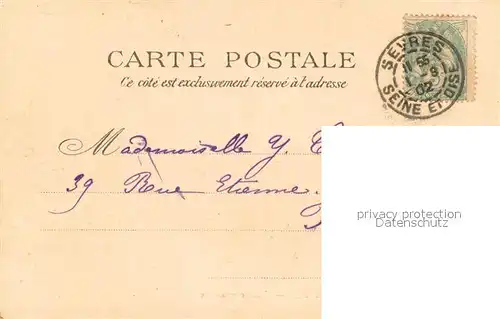 CARTE POSTALE
Ce côté est exclusivement réservé à l'adresse
SEVRES
02
SEINE ET OISE
Mademoiselle Y.
39 Rue Etienne
privacy protection
Datenschutz